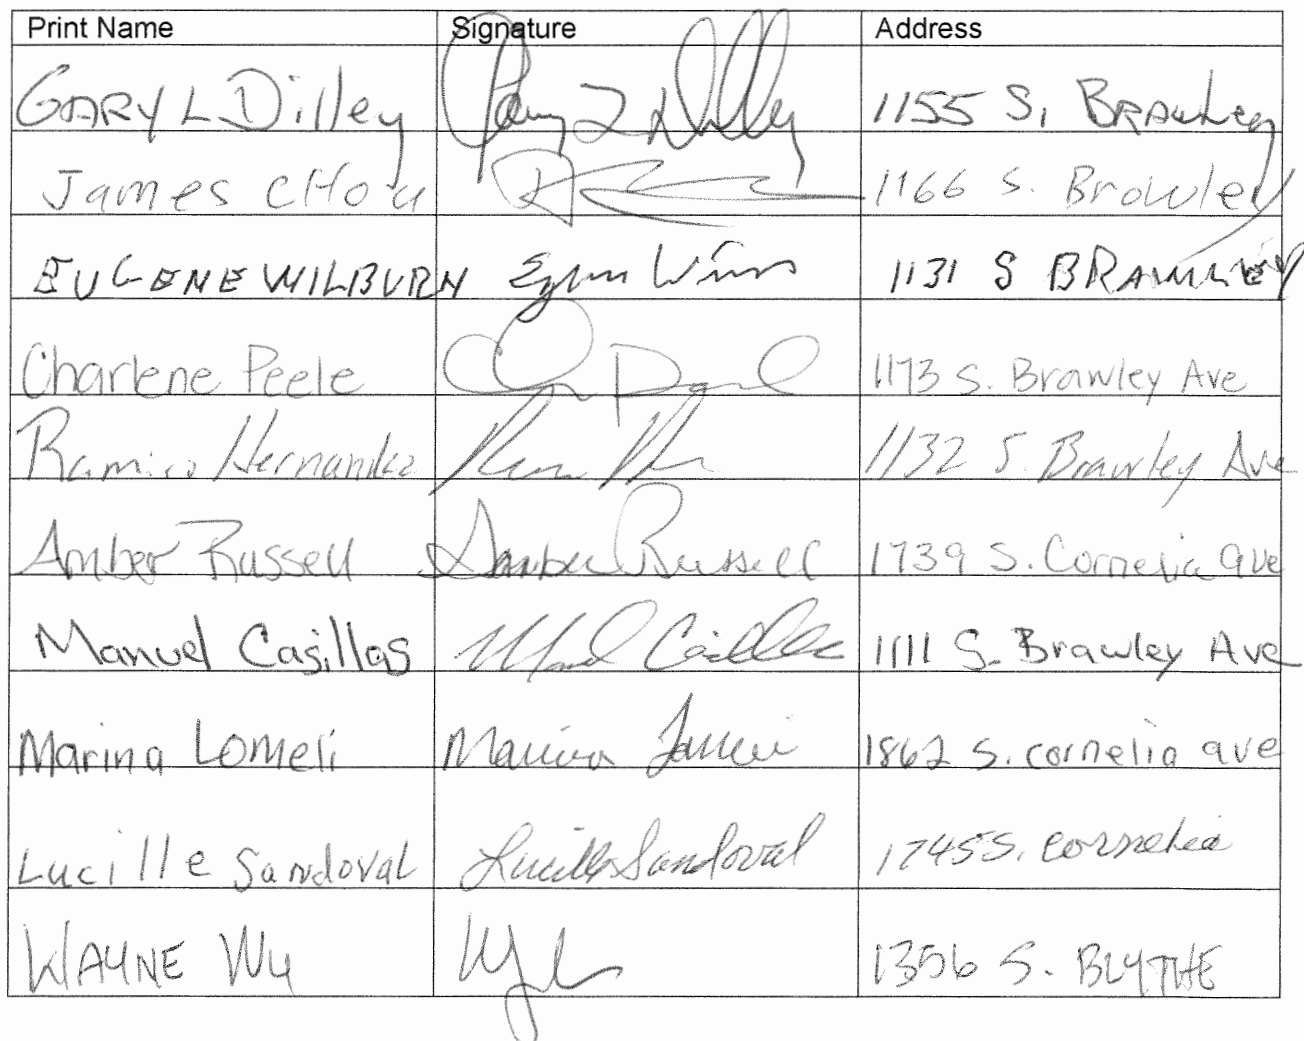 Print Name Signature Address
GARY L Dilley Gary L Dilley 1155 S. BRAWLEY
James CHou 1166 S. Browley
EUGENE WILBURN 1131 S BRAWLEY
Charlene Peele 1173 S. Brawley Ave
Ramiro Hernandez 1132 S. Brawley Ave
Amber Russell Amber Russell 1739 S. Cornelia ave
Manuel Casillas Manuel Casillas 1111 S. Brawley Ave
Marina Lomeli Marina Lomeli 1862 S. cornelia ave
Lucille Sandoval Lucille Sandoval 1745 S. cornelia
WAYNE WU 1356 S. BLYTHE